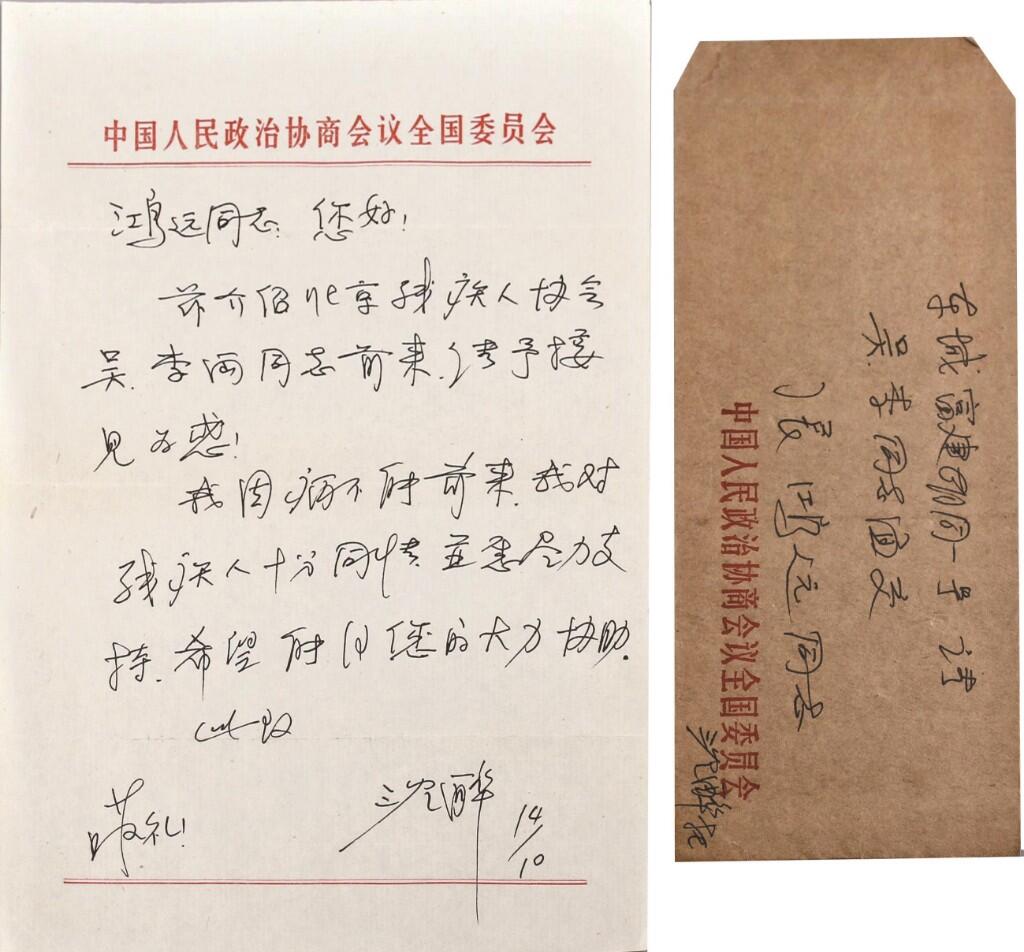 中国人民政治协商会议全国委员会
鸿远同志: 您好!
兹介绍北京残疾人协会
吴、李两同志前来,请予接
见为感!
我因病不能前来,我对
残疾人十分同情并愿尽力支
持,希望能得您的大力协助。
此致
敬礼!
沈醉
14/10
东城富建胡同一号 请
吴李同志面交
张鸿远同志
中国人民政治协商会议全国委员会
沈醉托